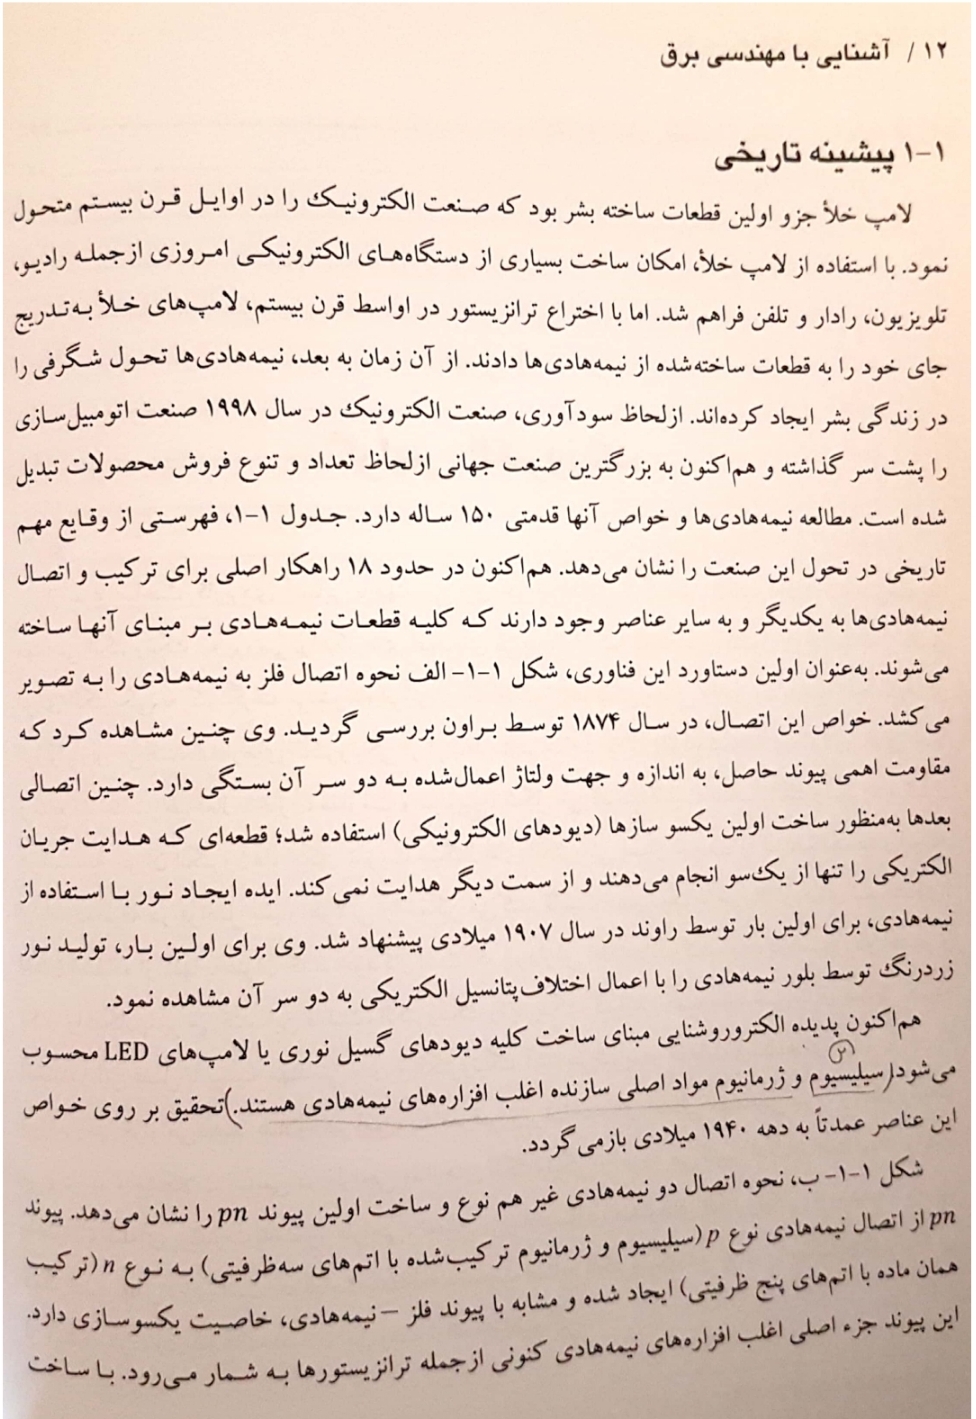 ۱۲ / آشنایی با مهندسی برق
۱-۱ پیشینه تاریخی
لامپ خلأ جزو اولین قطعات ساخته بشر بود که صنعت الکترونیک را در اوایل قرن بیستم متحول
نمود. با استفاده از لامپ خلأ، امکان ساخت بسیاری از دستگاه‌های الکترونیکی امروزی ازجمله رادیو،
تلویزیون، رادار و تلفن فراهم شد. اما با اختراع ترانزیستور در اواسط قرن بیستم، لامپ‌های خلأ به‌تدریج
جای خود را به قطعات ساخته‌شده از نیمه‌هادی‌ها دادند. از آن زمان به بعد، نیمه‌هادی‌ها تحول شگرفی را
در زندگی بشر ایجاد کرده‌اند. ازلحاظ سودآوری، صنعت الکترونیک در سال ۱۹۹۸ صنعت اتومبیل‌سازی
را پشت سر گذاشته و هم‌اکنون به بزرگترین صنعت جهانی ازلحاظ تعداد و تنوع فروش محصولات تبدیل
شده است. مطالعه نیمه‌هادی‌ها و خواص آنها قدمتی ۱۵۰ ساله دارد. جدول ۱-۱، فهرستی از وقایع مهم
تاریخی در تحول این صنعت را نشان می‌دهد. هم‌اکنون در حدود ۱۸ راهکار اصلی برای ترکیب و اتصال
نیمه‌هادی‌ها به یکدیگر و به سایر عناصر وجود دارند که کلیه قطعات نیمه‌هادی بر مبنای آنها ساخته
می‌شوند. به‌عنوان اولین دستاورد این فناوری، شکل ۱-۱- الف نحوه اتصال فلز به نیمه‌هادی را به تصویر
می‌کشد. خواص این اتصال، در سال ۱۸۷۴ توسط براون بررسی گردید. وی چنین مشاهده کرد که
مقاومت اهمی پیوند حاصل، به اندازه و جهت ولتاژ اعمال‌شده به دو سر آن بستگی دارد. چنین اتصالی
بعدها به‌منظور ساخت اولین یکسو سازها (دیودهای الکترونیکی) استفاده شد؛ قطعه‌ای که هدایت جریان
الکتریکی را تنها از یک‌سو انجام می‌دهند و از سمت دیگر هدایت نمی‌کند. ایده ایجاد نور با استفاده از
نیمه‌هادی، برای اولین بار توسط راوند در سال ۱۹۰۷ میلادی پیشنهاد شد. وی برای اولین بار، تولید نور
زردرنگ توسط بلور نیمه‌هادی را با اعمال اختلاف‌پتانسیل الکتریکی به دو سر آن مشاهده نمود.
هم‌اکنون پدیده الکتروروشنایی مبنای ساخت کلیه دیودهای گسیل نوری یا لامپ‌های LED محسوب
می‌شود. (سیلیسیوم و ژرمانیوم مواد اصلی سازنده اغلب افزاره‌های نیمه‌هادی هستند.) تحقیق بر روی خواص
این عناصر عمدتاً به دهه ۱۹۴۰ میلادی بازمی‌گردد.
شکل ۱-۱- ب، نحوه اتصال دو نیمه‌هادی غیر هم نوع و ساخت اولین پیوند pn را نشان می‌دهد. پیوند
pn از اتصال نیمه‌هادی نوع p (سیلیسیوم و ژرمانیوم ترکیب‌شده با اتم‌های سه‌ظرفیتی) به نوع n (ترکیب
همان ماده با اتم‌های پنج ظرفیتی) ایجاد شده و مشابه با پیوند فلز – نیمه‌هادی، خاصیت یکسوسازی دارد.
این پیوند جزء اصلی اغلب افزاره‌های نیمه‌هادی کنونی ازجمله ترانزیستورها به شمار می‌رود. با ساخت